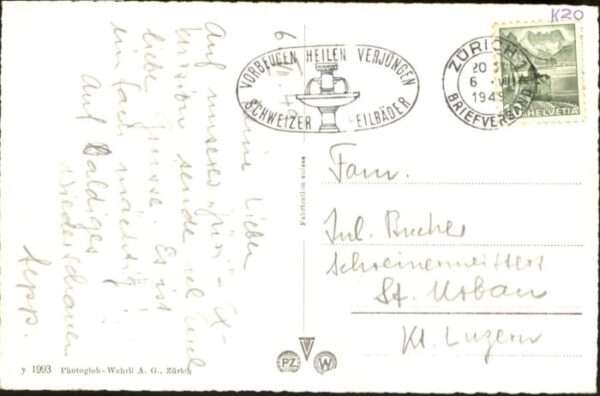 K20
VORBEUGEN HEILEN VERJÜNGEN
SCHWEIZER HEILBÄDER
ZÜRICH 1
20
6. VII.
1949
BRIEFVERSAND
HELVETIA
6. VII.
Meine Lieben
Auf unserer
sende ich Euch
liebe Grüsse. Es ist
einfach mächtig!
Auf Baldiges
Wiederschauen
Sepp.
Fabrication suisse
Fam.
Jul. Bucher
Schreinermeisters
St. Urban
Kt. Luzern
PZ W
y 1993 Photoglob-Wehrli A. G., Zürich